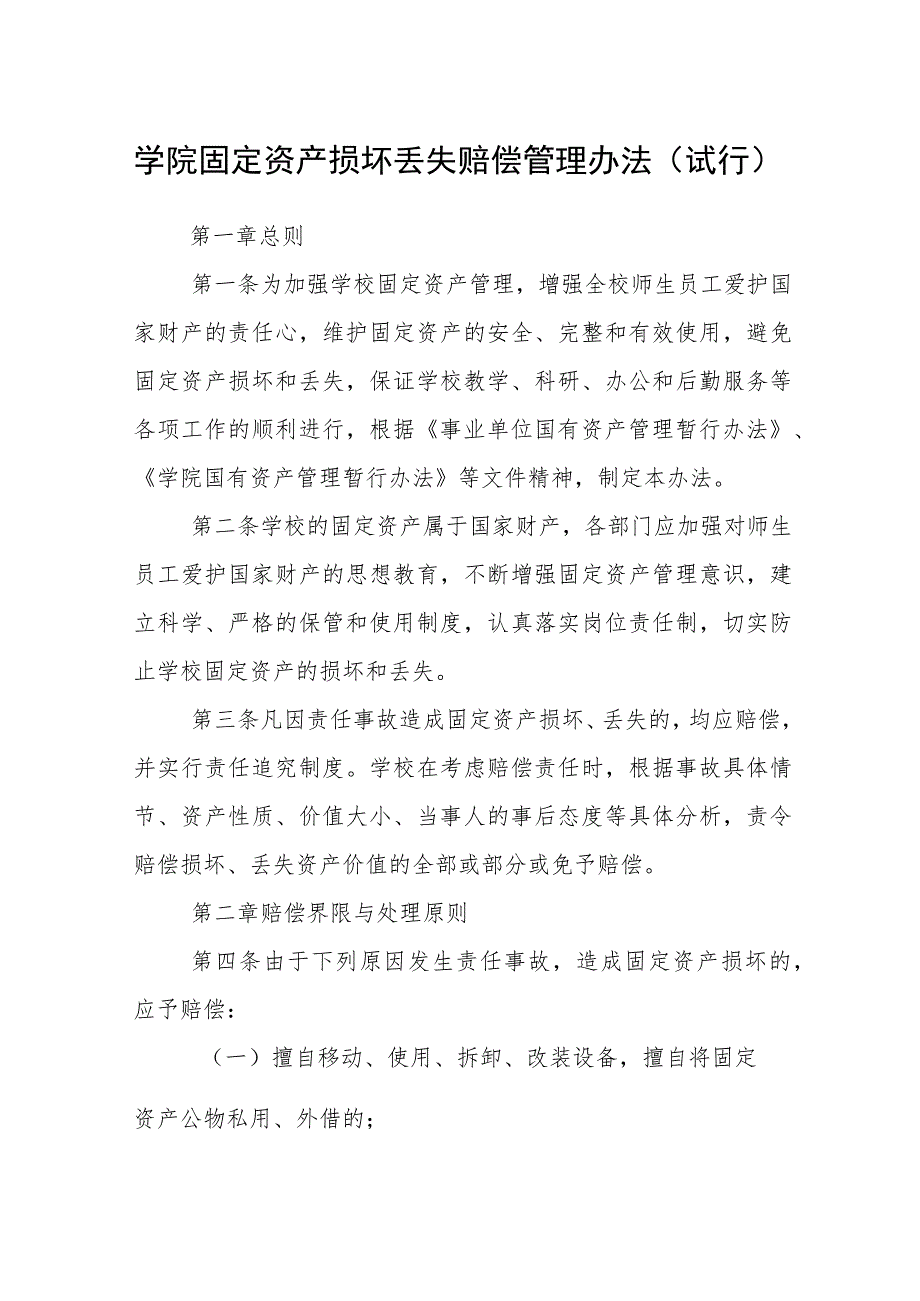 学院固定资产损坏丢失赔偿管理办法（试行）
第一章总则
第一条为加强学校固定资产管理，增强全校师生员工爱护国
家财产的责任心，维护固定资产的安全、完整和有效使用，避免
固定资产损坏和丢失，保证学校教学、科研、办公和后勤服务等
各项工作的顺利进行，根据《事业单位国有资产管理暂行办法》、
《学院国有资产管理暂行办法》等文件精神，制定本办法。
第二条学校的固定资产属于国家财产，各部门应加强对师生
员工爱护国家财产的思想教育，不断增强固定资产管理意识，建
立科学、严格的保管和使用制度，认真落实岗位责任制，切实防
止学校固定资产的损坏和丢失。
第三条凡因责任事故造成固定资产损坏、丢失的，均应赔偿，
并实行责任追究制度。学校在考虑赔偿责任时，根据事故具体情
节、资产性质、价值大小、当事人的事后态度等具体分析，责令
赔偿损坏、丢失资产价值的全部或部分或免予赔偿。
第二章赔偿界限与处理原则
第四条由于下列原因发生责任事故，造成固定资产损坏的，
应予赔偿：
（一）擅自移动、使用、拆卸、改装设备，擅自将固定
资产公物私用、外借的；